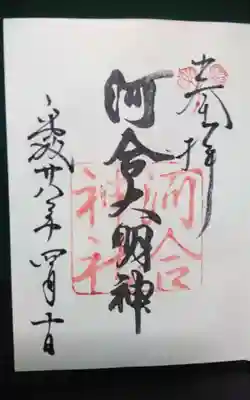 奉拝
河合大明神
河合
神社
平成廿八年四月十日